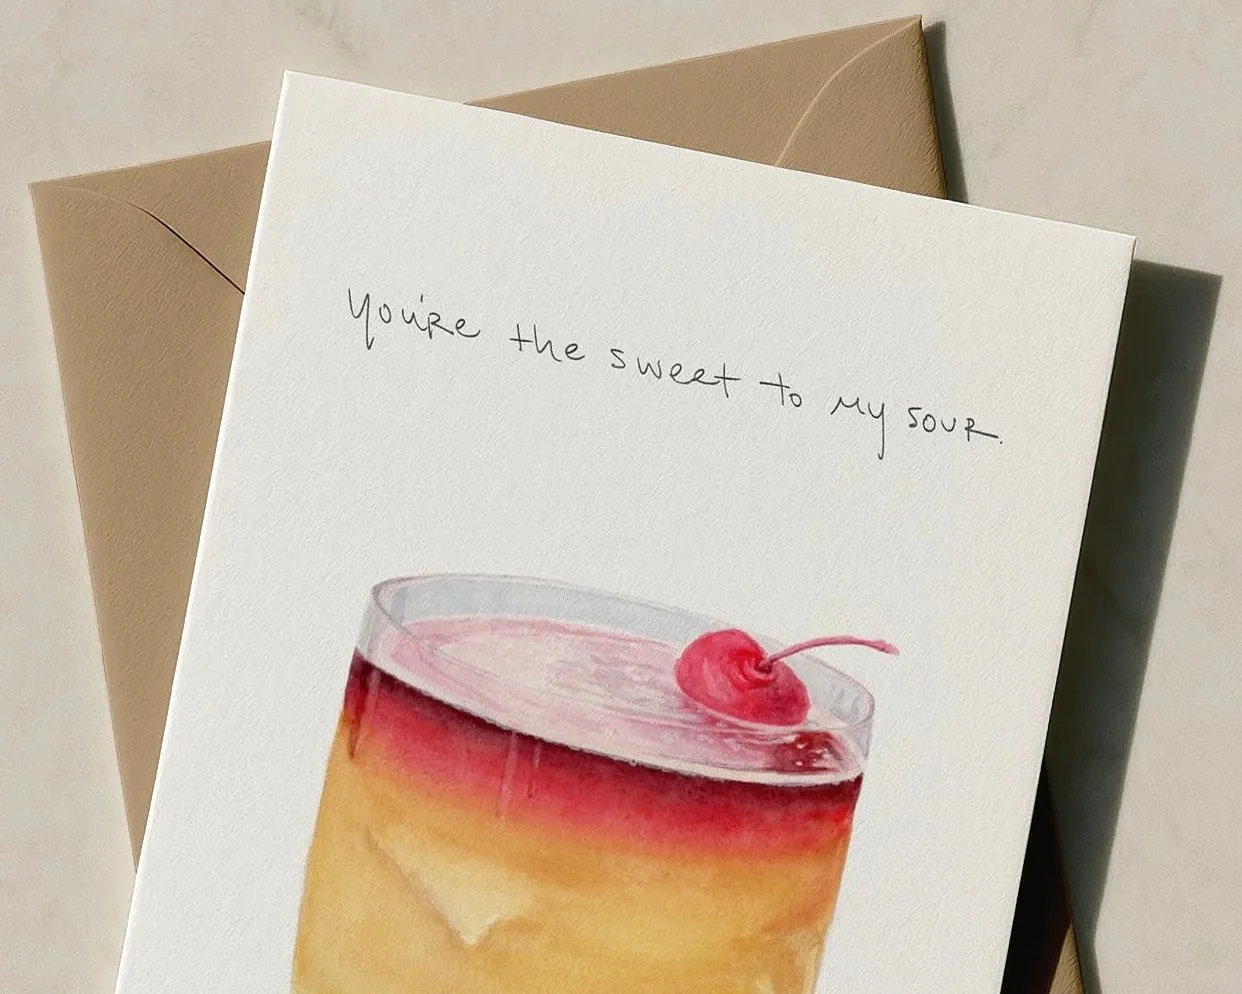 You're the sweet to my sour.